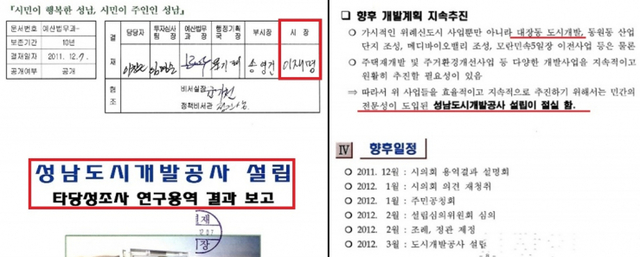 『시민이 행복한 성남, 시민이 주인인 성남』
문서번호 예산법무과-
보존기간 10년
결재일자 2011. 12.7.
공개여부 공개
결재
담당자 투자심사팀장 예산법무과장 행정기획국장 부시장 시장
송영건 이재명
협조
비서실장
정책비서관
성남도시개발공사 설립
타당성조사 연구용역 결과 보고
❑ 향후 개발계획 지속추진
❍ 가시적인 위례신도시 사업뿐만 아니라 대장동 도시개발, 동원동 산업
단지 조성, 메디바이오밸리 조성, 모란민속5일장 이전사업 등은 물론
❍ 주택재개발 및 주거환경개선사업 등 다양한 개발사업을 지속적이고
원활히 추진할 필요성이 있음
⇒ 따라서 위 사업들을 효율적이고 지속적으로 추진하기 위해서는 민간의
전문성이 도입된 성남도시개발공사 설립이 절실 함.
Ⅳ 향후일정
❍ 2011. 12월 : 시의회 용역결과 설명회
❍ 2012. 1월 : 시의회 의견 재청취
❍ 2012. 1월 : 주민공청회
❍ 2012. 2월 : 설립심의위원회 심의
❍ 2012. 2월 : 조례, 정관 제정
❍ 2012. 3월 : 도시개발공사 설립